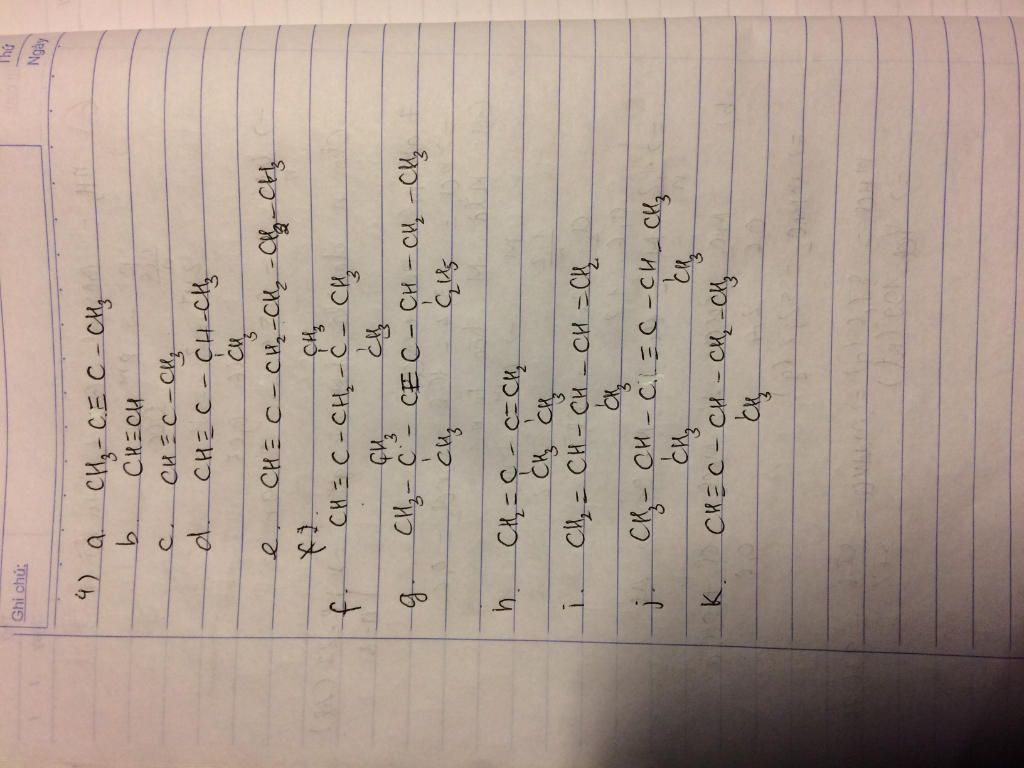 Thứ
Ngày
Ghi chú:
4)
a. CH₃ - C ≡ C - CH₃
b. CH≡CH
c. CH≡C - CH₃
d. CH≡C - CH - CH₃
CH₃
e. CH≡C - CH₂ - CH₂ - CH₂ - CH₃
CH₃
f. CH≡C - CH₂ - C - CH₃
CH₃ CH₃
g. CH₃ - C - C≡C - CH - CH₂ - CH₃
CH₃ C₂H₅
h. CH₂ = C - C = CH₂
CH₃ CH₃
i. CH₂ = CH - CH - CH = CH₂
CH₃
j. CH₃ - CH - C ≡ C - CH - CH₃
CH₃ CH₃
k. CH≡C - CH - CH₂ - CH₃
CH₃